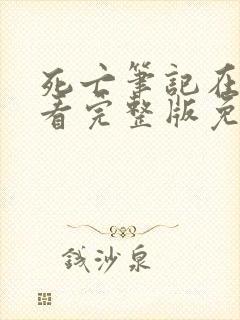 死亡筆記在
看完整版免
钱沙泉